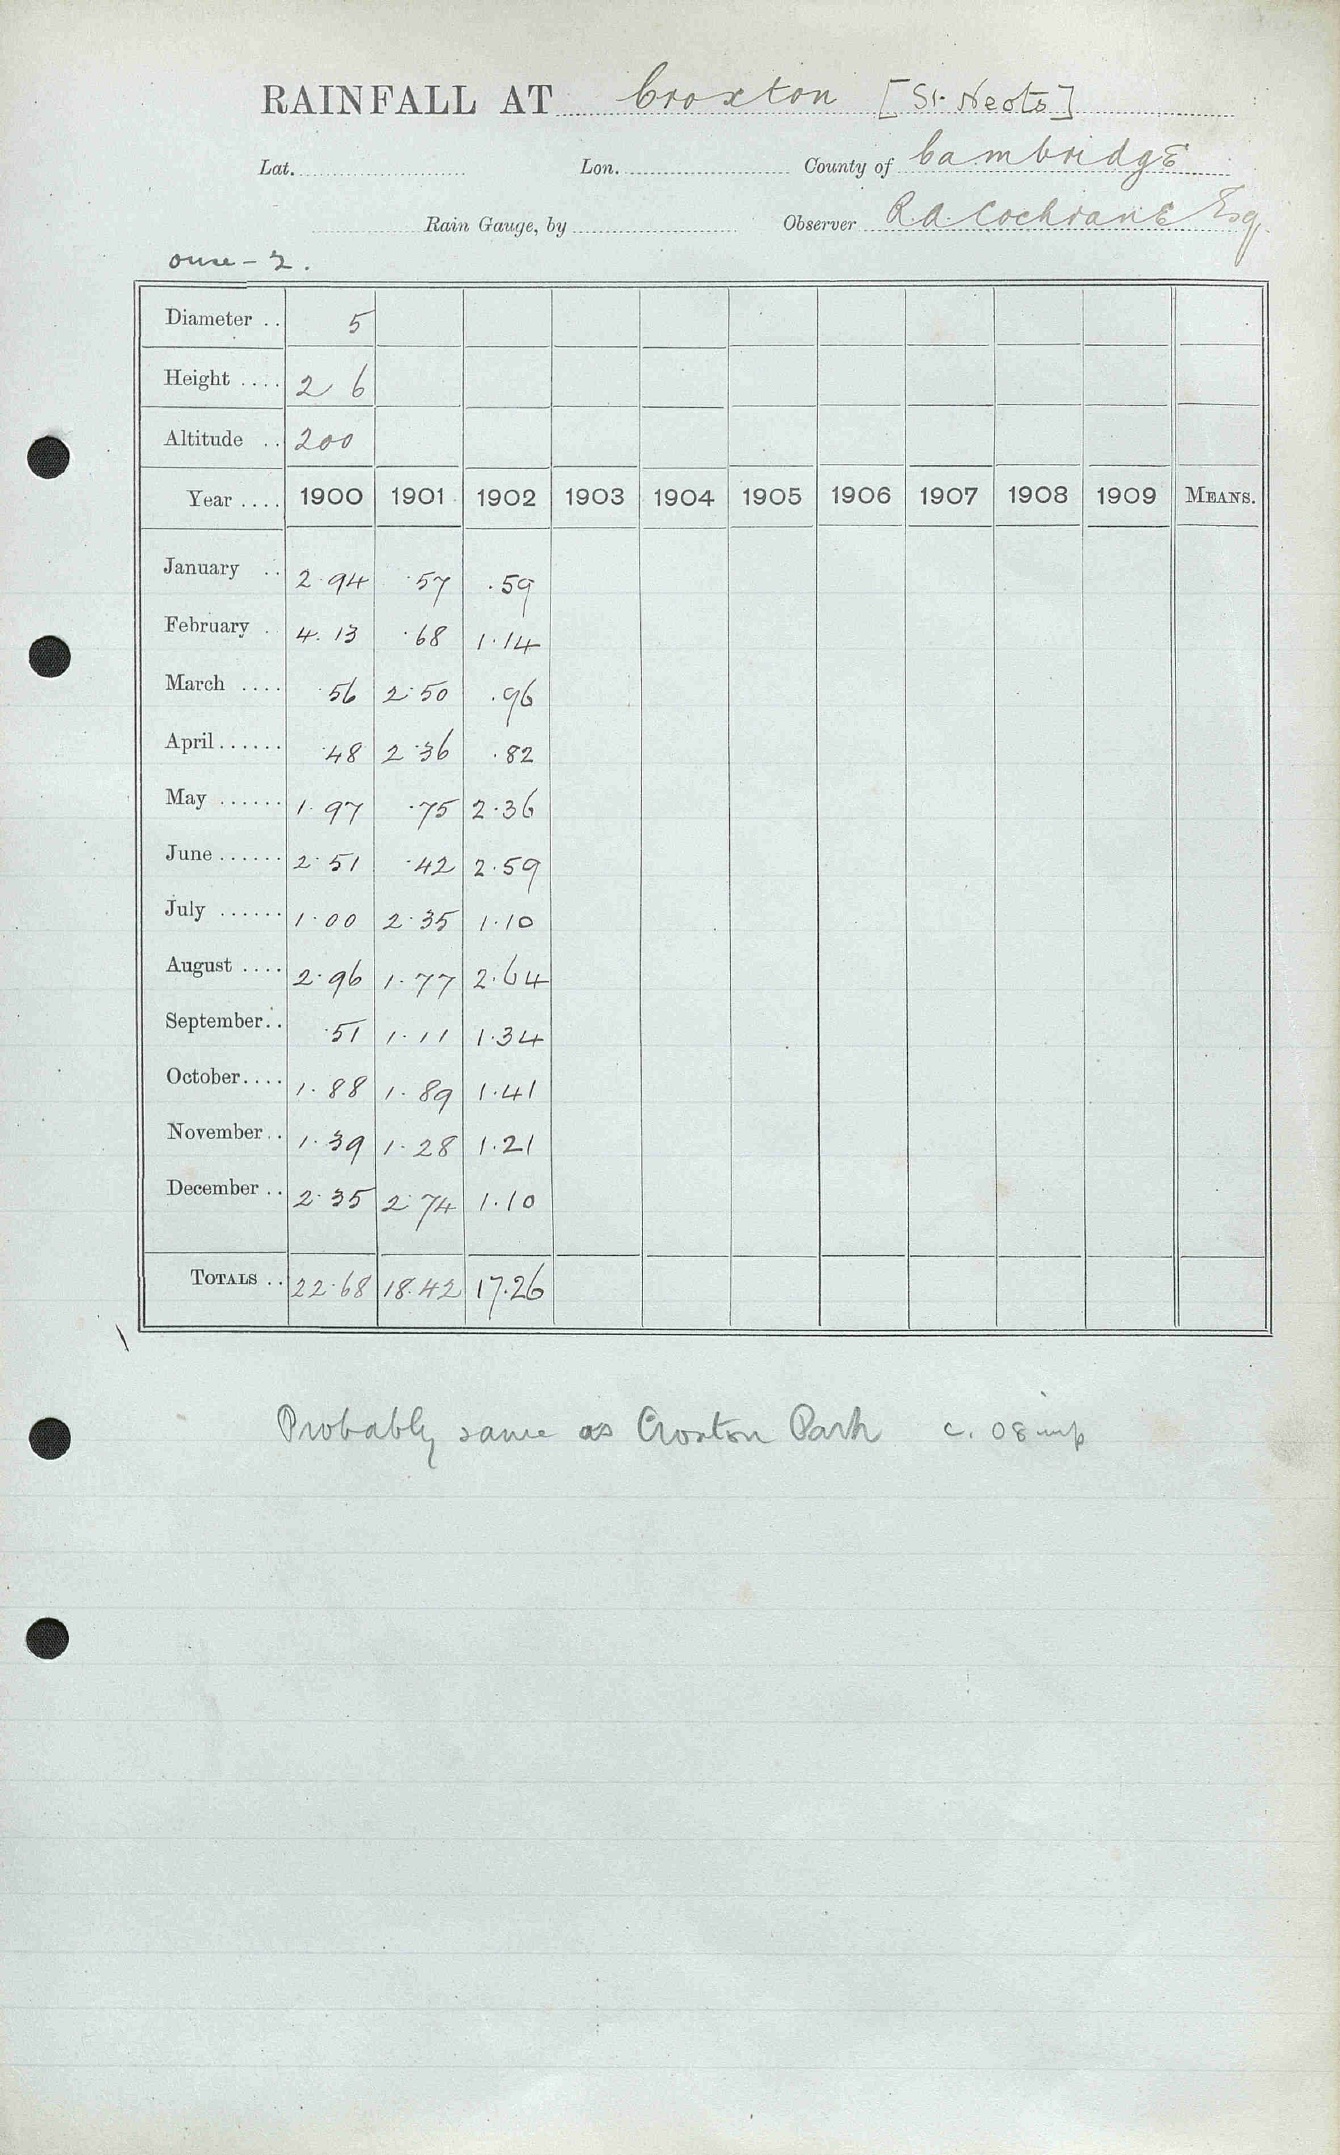 RAINFALL AT Croxton [St. Neots]
Lat. Lon. County of Cambridge
Rain Gauge, by Observer R.A. Cochrane Esq.
Ouse - 2.
Diameter .. 5
Height .... 2 6
Altitude .. 200
Year .... 1900 1901 1902 1903 1904 1905 1906 1907 1908 1909 MEANS.
January .. 2.94 .57 .59
February . 4.13 .68 1.14
March .... .56 2.50 .96
April ...... .48 2.36 .82
May ...... 1.97 .75 2.36
June ...... 2.51 .42 2.59
July ...... 1.00 2.35 1.10
August .... 2.96 1.77 2.64
September.. .51 1.11 1.34
October.... 1.88 1.89 1.41
November.. 1.39 1.28 1.21
December .. 2.35 2.74 1.10
TOTALS .. 22.68 18.42 17.26
Probably same as Croxton Park c. 08